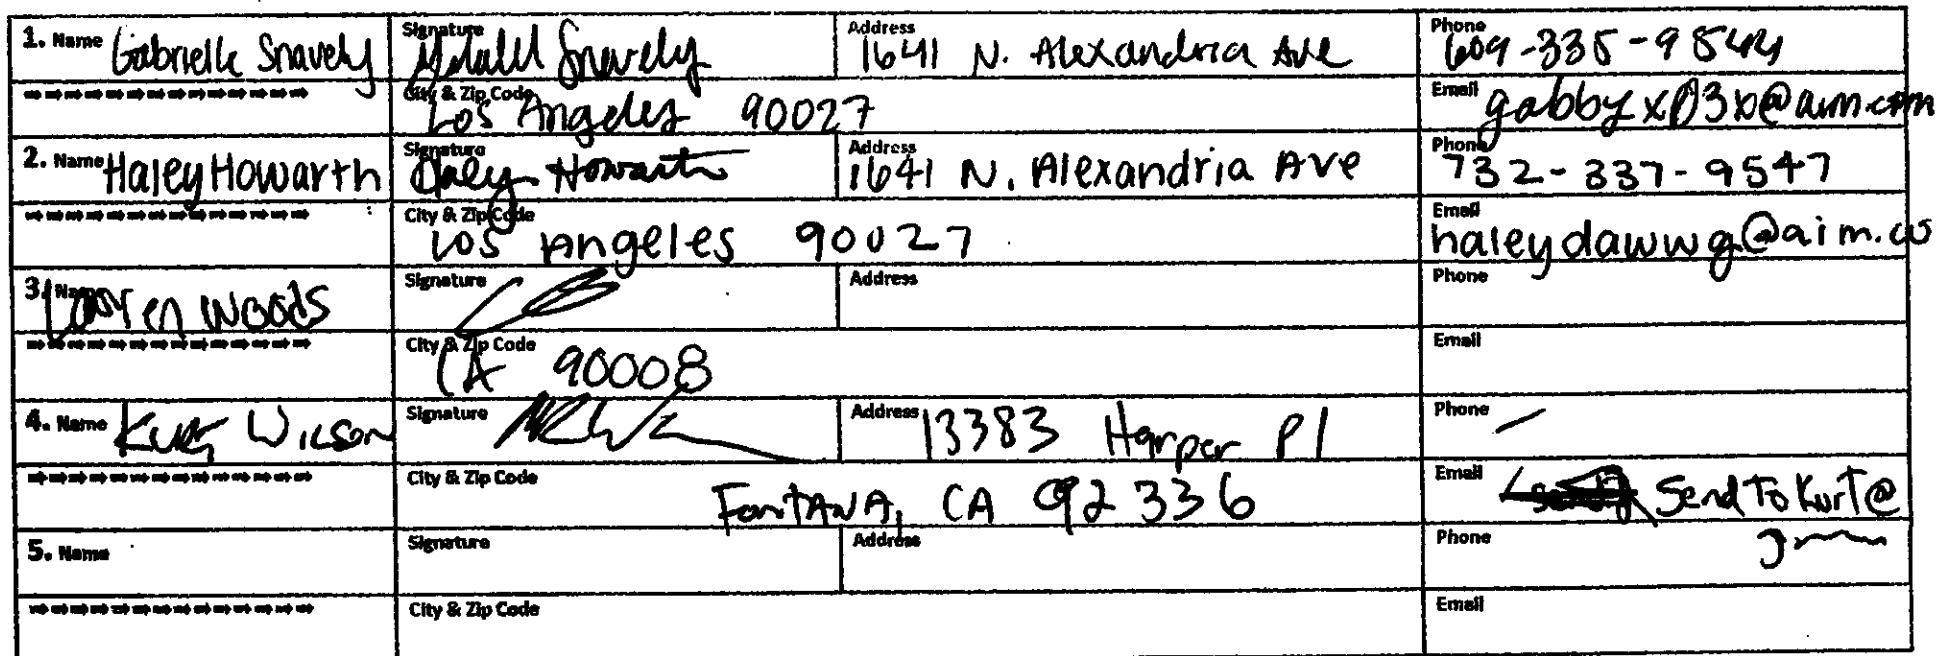 1. Name Gabrielle Snavely Signature Snavely Address 1641 N. Alexandria Ave Phone 609-335-9544
City & Zip Code Los Angeles 90027 Email @aim.com
2. Name Haley Howarth Signature Haley Howarth Address 1641 N. Alexandria Ave Phone 732-337-9547
City & Zip Code Los Angeles 90027 Email haleydawwg@aim.co
3. Name Lauren Woods Signature Address Phone
City & Zip Code CA 90008 Email
4. Name Wilson Signature Address 13383 Harper Pl Phone
City & Zip Code Fontana, CA 92336 Email SendToKurt@
5. Name Signature Address Phone
City & Zip Code Email